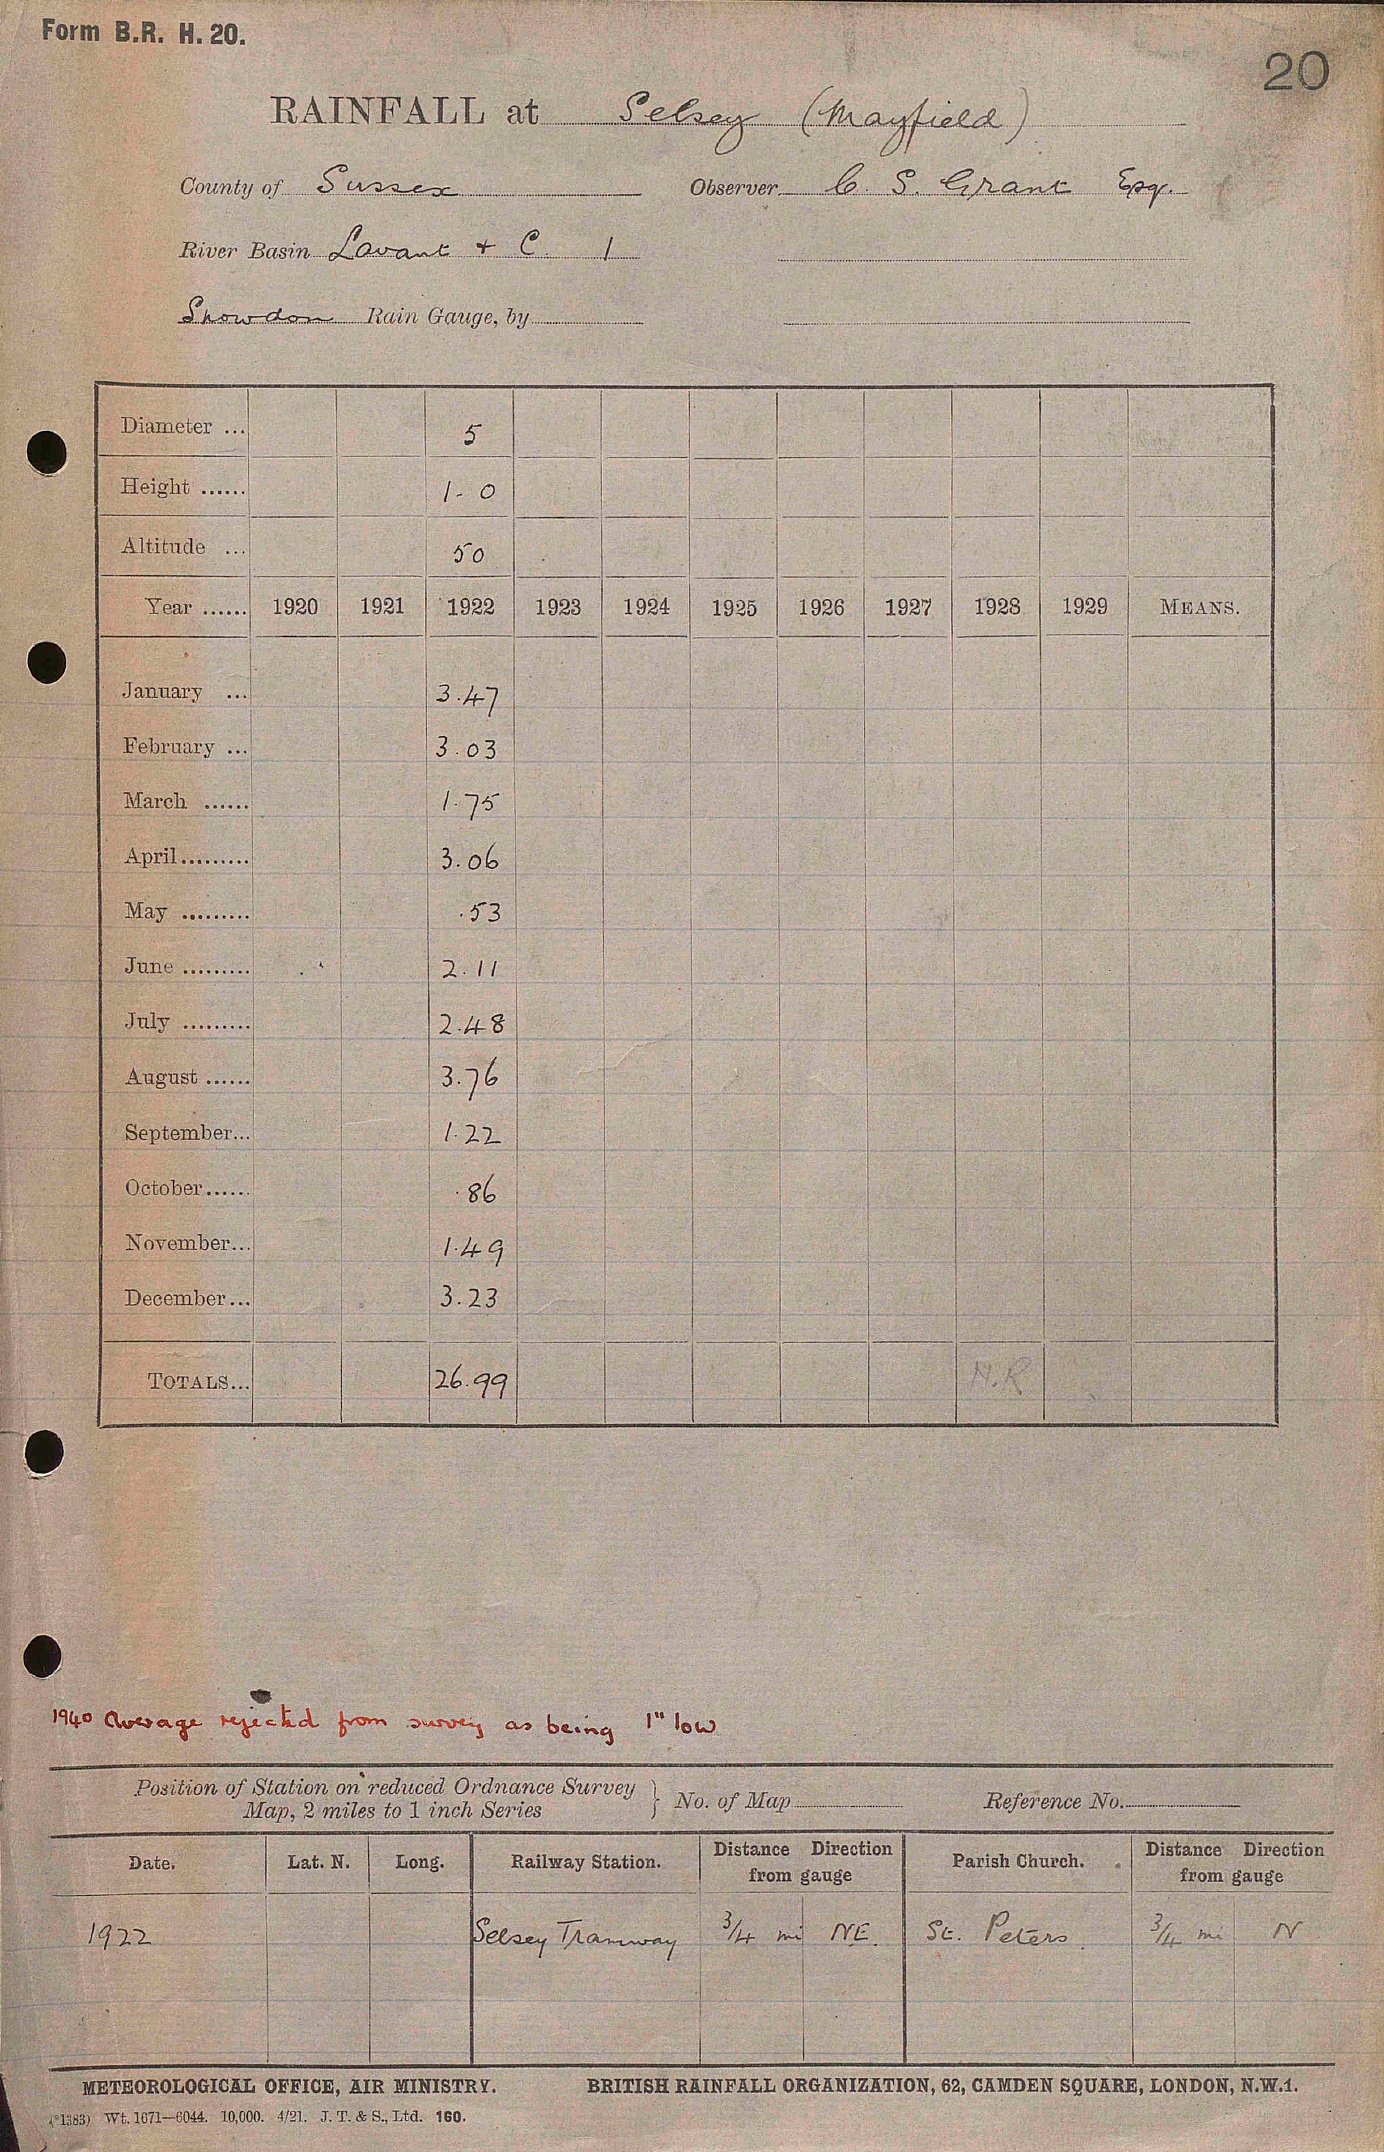 Form B.R. H. 20.
20
RAINFALL at Selsey (Mayfield)
County of Sussex Observer C. S. Grant Esq.
River Basin Lavant + C. 1
Snowdon Rain Gauge, by
Diameter ... 5
Height ...... 1-0
Altitude ... 50
Year ...... 1920 1921 1922 1923 1924 1925 1926 1927 1928 1929 MEANS.
January ... 3.47
February ... 3.03
March ...... 1.75
April......... 3.06
May ......... .53
June ......... 2.11
July ......... 2.48
August ...... 3.76
September... 1.22
October...... .86
November... 1.49
December... 3.23
TOTALS... 26.99 N.R
1940 Average rejected from survey as being 1" low
Position of Station on reduced Ordnance Survey
Map, 2 miles to 1 inch Series } No. of Map Reference No.
Date. Lat. N. Long. Railway Station. Distance Direction from gauge Parish Church. Distance Direction from gauge
1922 Selsey Tramway 3/4 mi NE. St. Peters. 3/4 mi N
METEOROLOGICAL OFFICE, AIR MINISTRY. BRITISH RAINFALL ORGANIZATION, 62, CAMDEN SQUARE, LONDON, N.W.1.
(*1383) Wt. 1671—6044. 10,000. 4/21. J. T. & S., Ltd. 160.